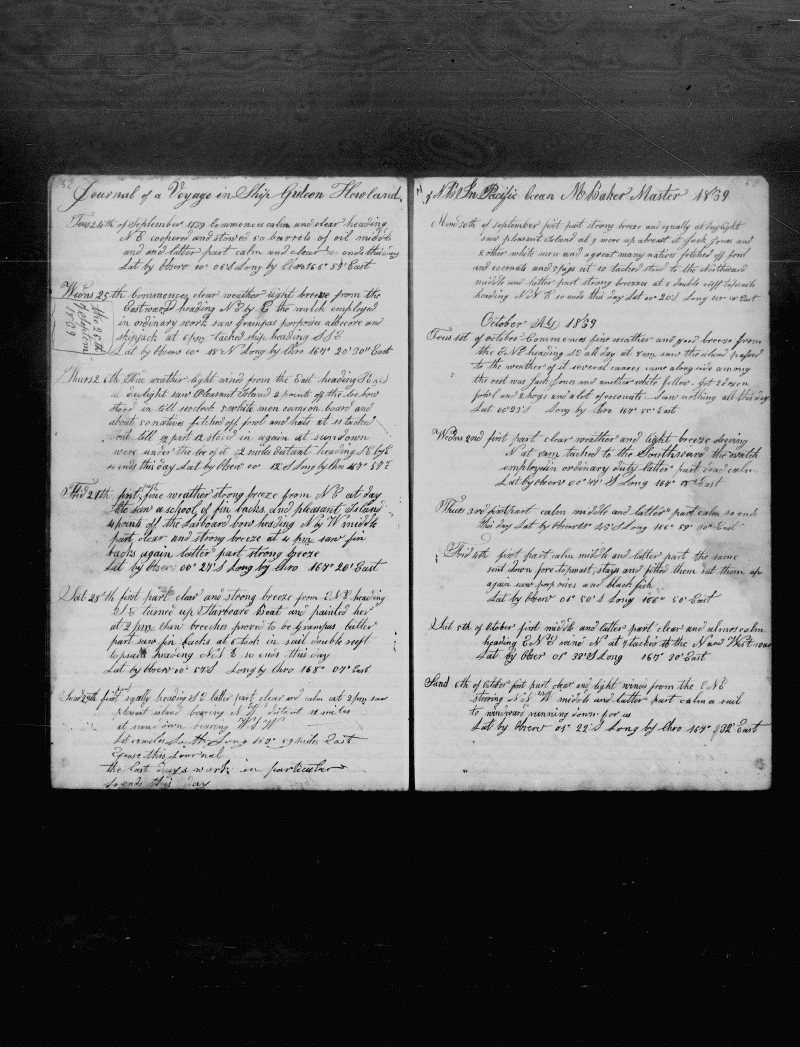 Journal of a Voyage in Ship Gideon Howland
Tues 24th of September 1839 Commences calm and clear heading
N E coopered and stowed 50 barrels of oil middle
and latter part calm and clear so ends this day
Lat by Observ 00° 06' S Long by Chro 166° 53' East
Wedns 25th Commences clear weather light breeze from the
Eastward heading N E by E the watch employed
in ordinary work saw Grampas porpoises albecore and
skipjack at 6 pm tacked ship heading S S E
Lat by Observ 00° N Long by Chro 167° 20' 30" East
the 25th
of September
1839
Thurs 26th Fine weather light wind from the East heading
at daylight saw Pleasant Island 2 points off the lee bow
stood in till 11 oclock 5 white men came on board and
about 50 natives fetched off fowl and hats at 11 tacked
out till part 12 stood in again at sundown
were under the lee of it 2 miles distant heading
so ends this day Lat by Obser 00° 12' S Long by Chro 167° E
Frid 27th first fine weather strong breeze from N E at day
lite saw a school of fin backs and pleasant Island
4 points off the larboard bow heading N by W middle
part clear and strong breeze at 4 pm saw fin
backs again latter part strong breeze
Lat by Observ 00° 24' S Long by Chro 167° 20' East
Sat 28th first part clear and strong breeze from E N E heading
S E turned up Starboard Boat and painted her
at 2 pm Saw breeches prove to be grampas latter
part saw fin backs at 6 took in sail double reeft
topsails heading N E so ends this day
Lat by Observ 00° 57' S Long by Chro 168° 07' East
Sund 29th first part squally heading S E latter part clear and calm at 2 pm saw
plesant island bearing N W distant 18 miles
at sun down bearing W S W
Long 167° 59 miles East
Excuse this journal
the last days work in particular
so ends this day
of N B In Pacific Ocean M Baker Master 1839
Mond 30th of September first part strong breeze and squally at daylight
saw pleasant Island at 9 were up abreast it Jack Jones and
2 other white men and a great many natives fetched off fowl
and coconuts and 2 pigs at 10 tacked stood to the Northward
middle and latter part strong breezes at 6 double reeft topsails
heading N N E so ends this day Lat 00° 20' S Long East
October 1839
Tues 1st of October Commences fine weather and good breeze from
the E N E heading S E all day at 8 am saw the island passed
to the weather of it several canoes came along side among
the rest was Jack Jones and another white fellow. Got 2 dozen
fowl and 2 hogs and a lot of coconuts. Saw nothing all this day
Lat 00° 23' S Long by Chro 167° 55' East
Wedns 2nd first part clear weather and light breeze steering
N at 8 am tacked to the Southward the watch
employed in ordinary duty latter part dead calm
Lat by Observ 00° S Long 167° East
Thurs 3rd first part calm middle and latter part calm so ends
this day Lat by Observ 00° 48' S Long 166° 59' 30" East
Frid 4th first part calm middle and latter part the same
sent down fore topmast, stays and fitted them sat them up
again saw porpoises and black fish
Lat by Observ 00° 50' S Long 166° 50' East
Sat 5th of October first middle and latter part clear and almos calm
heading E N E wind N at 7 tacked to the N and West ward
Lat by Obser 01° 39' S Long 167° 30' East
Sund 6th of October first part clear and light winds from the E N E
steering N N W middle and latter part calm a sail
to windward running down for us
Lat by Observ 01° 22' S Long by Chro 167° 32' East